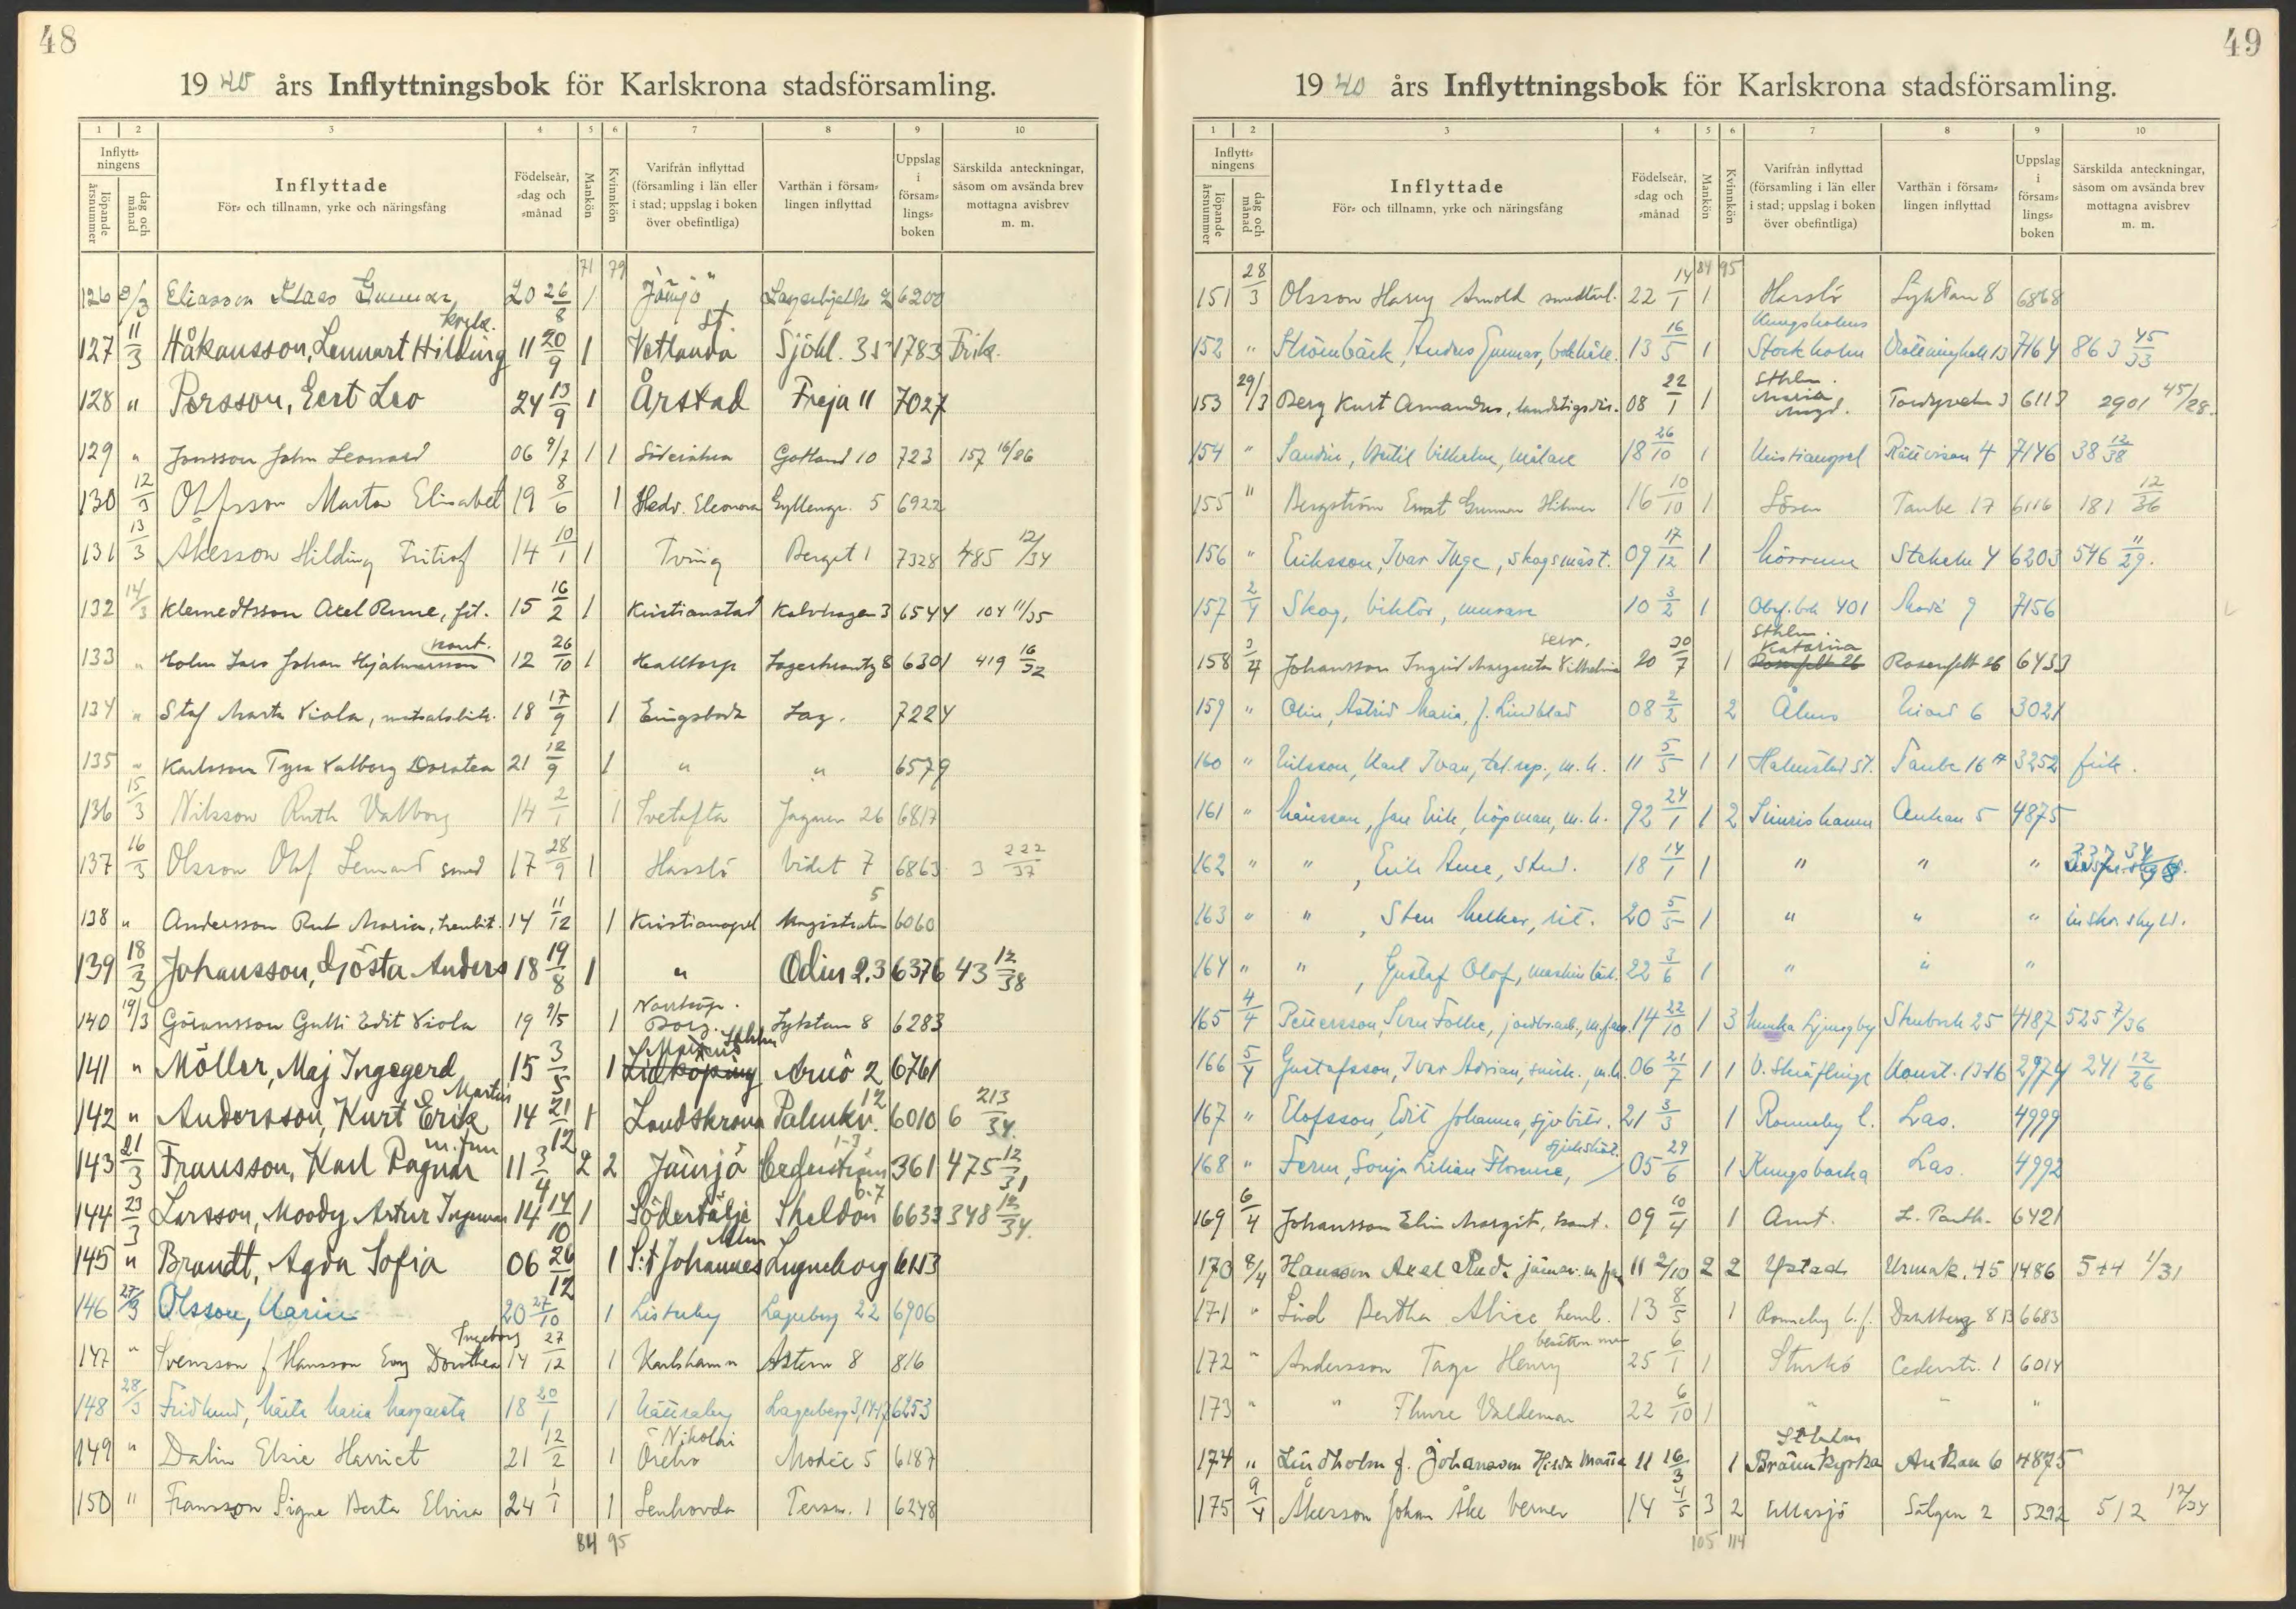 48
1940 års Inflyttningsbok för Karlskrona stadsförsamling.
1 2 3 4 5 6 7 8 9 10
Inflytt-
ningens
löpande årsnummer
dag och månad
Inflyttade
För- och tillnamn, yrke och näringsfång
Födelseår, -dag och -månad
Mankön
Kvinnkön
Varifrån inflyttad (församling i län eller i stad; uppslag i boken över obefintliga)
Varthän i församlingen inflyttad
Uppslag i församlingsboken
Särskilda anteckningar, såsom om avsända brev mottagna avisbrev m. m.
71 79
126 8/3 Eliasson Klaes Gunnar 20 26/8 1 Jämjö Lagerbjelke 2 6200
127 11/3 Håkansson, Lennart Hilding 11 20/9 1 Vetlanda st. Sjöhl. 35 1783 Frik.
128 " Persson, Gert Leo 24 13/9 1 Årstad Freja 11 7027
129 " Jonsson John Leonard 06 9/7 1 1 Söderåkra Gotland 10 723 157 16/26
130 12/3 Olofsson Marta Elisabet 19 8/6 1 Hedv. Eleonora Gyllengr. 5 6922
131 13/3 Åkesson Hilding Fritiof 14 10/1 1 Tving Berget 1 7328 485 12/34
132 14/3 Klemedtsson Axel Rune, fil. 15 16/2 1 Kristianstad Kalvhagen 3 6544 104 11/35
133 " Holm Lars Johan Hjalmarsson kont. 12 26/10 1 Halltorp Lagerkrantz 8 6301 419 16/32
134 " Staf Marta Viola, matsalsbitr. 18 17/9 1 Eringsboda Laz. 7224
135 " Karlsson Tyra Valborg Dorotea 21 12/9 1 " " 6579
136 15/3 Nilsson Ruth Valborg 14 2/1 1 Tvetofta Jagaren 26 6817
137 16/3 Olsson Olof Lennard smed 17 28/9 1 Hasslö Videt 7 6863 3 222/37
138 " Andersson Rut Maria, hembit. 14 11/12 1 Kristianopel Magistraten 5 6060
139 18/3 Johansson, Gösta Anders 18 19/8 1 " Odin 2.3 6376 43 12/38
140 19/3 Göransson Gulli Edit Viola 19 9/5 1 Norrköp. Borg. Lyktan 8 6283
141 " Möller, Maj Ingegerd 15 3/5 1 S. Matteus Sthlm Lidköping Arnö 2 6761
142 " Andersson, Kurt Erik Martin 14 21/12 1 Landskrona Palmkv. 12 6010 6 213/34.
143 21/3 Fransson, Karl Ragnar m. fam 11 3/4 2 2 Jämjö Cederström 1-3 361 475 12/31
144 23/3 Larsson, Moody Artur Ingemar 14 14/10 1 Södertälje Sheldon 6.7 6633 348 12/34.
145 " Brandt, Agda Sofia 06 26/12 1 S:t Johannes Mlm Lugneborg 6113
146 27/3 Olsson, Karin 20 27/10 1 Listerby Lagerberg 22 6906
147 " Svensson f Hansson Evy Dorothea Ingeborg 14 27/12 1 Karlshamn Astern 8 816
148 28/3 Fridlund, Märta Maria Margareta 18 20/1 1 Nättraby Lagerberg 3,14-17 6253
149 " Dalin Elsie Harriet 21 12/2 1 Nikolai Örebro Modée 5 6187
150 " Fransson Signe Berta Elvira 24 1/1 1 Lenhovda Tersm. 1 6248
84 95
49
1940 års Inflyttningsbok för Karlskrona stadsförsamling.
1 2 3 4 5 6 7 8 9 10
Inflytt-
ningens
löpande årsnummer
dag och månad
Inflyttade
För- och tillnamn, yrke och näringsfång
Födelseår, -dag och -månad
Mankön
Kvinnkön
Varifrån inflyttad (församling i län eller i stad; uppslag i boken över obefintliga)
Varthän i församlingen inflyttad
Uppslag i församlingsboken
Särskilda anteckningar, såsom om avsända brev mottagna avisbrev m. m.
84 95
151 28/3 Olsson Harry Arnold smedlärl. 22 14/1 1 Hasslö Lyktan 8 6868
152 " Strömbäck, Anders Gunnar, bokhåll. 13 16/5 1 Kungsholms Stockholm Drottninghol 13 7164 863 45/33
153 29/3 Berg Kurt Amandus, landstigsdir. 08 22/1 1 Sthlm. Maria Magd. Tordyveln 3 6113 2901 45/28.
154 " Sandin, Bertil Vilhelm, målare 18 26/10 1 Kristianopel Rättvisan 4 7146 38 12/38
155 " Bergström Ernst Gunnar Hilmer 16 10/10 1 Lösen Taube 17 6116 181 12/36
156 " Eriksson, Ivar Inge, skogsmäst. 09 17/12 1 Mörrum Stekeln 4 6203 546 11/29.
157 2/4 Skog, Viktor, murare 10 3/2 1 Obef. bok 401 Modé 9 7156
158 3/4 Johansson Ingrid Margareta Vilhelmina serv. 20 30/7 1 Sthlm. Katarina Rosenfelt 26 Rosenfelt 26 6433
159 " Olin, Astrid Maria, f. Lindblad 08 2/2 2 Ålmo 6 3021
160 " Nilsson, Karl Ivan, tel.rep., m. h. 11 5/5 1 1 Halmstad St. Taube 16 A 3252 frik.
161 " Månsson, Jan Erik, köpman, m. h. 92 24/1 1 2 Simrishamn Ankan 5 4875
162 " " , Erik Arne, stud. 18 14/1 1 " " " 337 34/38
163 " " , Sten Melker, rit. 20 5/5 1 " " " inskr. skyld.
164 " " , Gustaf Olof, maskinlärl. 22 3/6 1 " " "
165 4/4 Petersson, Sven Folke, jordbr.arb., m. fam. 14 22/10 1 3 Munka Ljungby Stubock 25 4187 525 7/36
166 5/4 Gustafsson, Ivar Adrian, snick., m. h. 06 21/7 1 1 V. Skräflinge Konst. 13-16 2974 241 12/26
167 " Elofsson, Edit Johanna, sjv.bitr. 21 3/3 1 Ronneby l. Las. 4999
168 " Ferm, Sonja Lilian Florence, sjuksköt. 05 29/6 1 Kungsbacka Las. 4992
169 6/4 Johansson Elin Margit, kont. 09 10/4 1 Amt. L. Panth. 6421
170 8/4 Hansson Axel Rud. järnar. m fam 11 2/10 2 2 Ystad Urmak. 45 1486 544 1/31
171 " Lind Bertha Alice hembi. 13 8/5 1 Ronneby l. f. Dahlberg 8 B 6683
172 " Andersson Tage Henry besättn man 25 6/1 1 Sturkö Cederstr. 1 6014
173 " " Thure Valdemar 22 6/10 1 " " "
174 " Lindholm f. Johansson Hilda Maria 11 16/3 1 Stholm Brännkyrka Ankan 6 4875
175 9/4 Åkesson Johan Åke Verner 14 4/5 3 2 Ullasjö Sälgen 2 5292 512 12/34
105 114